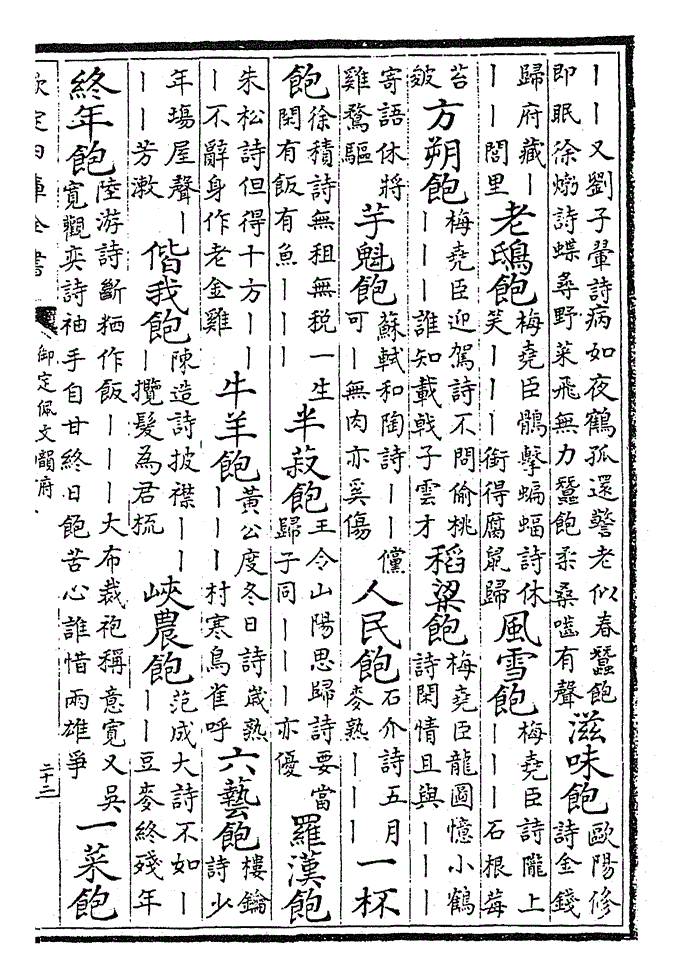 ｜｜又劉子翬詩病如夜鶴孤還警老似春蠶飽
即眠徐㶿詩蝶尋野菜飛無力蠶飽柔桑嚙有聲
滋味飽
歐陽修
詩金錢
歸府藏｜
｜｜閭里
老鴟飽
梅堯臣鶻擊蝙蝠詩休
笑｜｜｜銜得腐鼠歸
風雪飽
梅堯臣詩隴上
｜｜｜石根莓
苔
皴
方朔飽
梅堯臣迎駕詩不問偷桃
｜｜｜誰知載戟子雲才
稻粱飽
梅堯臣龍圖憶小鶴
詩閑情且與｜｜｜
寄語休將
雞鶩驅
芋魁飽
蘇軾和陶詩｜｜儻
可｜無肉亦奚傷
人民飽
石介詩五月
麥熟｜｜｜
一杯
飽
徐積詩無租無税一生
閑有飯有魚｜｜｜
半菽飽
王令山陽思歸詩要當
歸子同｜｜｜亦優
羅漢飽
朱松詩但得十方｜｜
｜不辭身作老金雞
牛羊飽
黃公度冬日詩歲熟
｜｜｜村寒鳥雀呼
六藝飽
樓鑰
詩少
年塲屋聲｜
｜｜芳漱
偕我飽
陳造詩披襟｜｜
｜攬髮為君梳
峽農飽
范成大詩不如｜
｜｜豆麥終殘年
終年飽
陸游詩斷栖作飯｜｜｜大布裁袍稱意寬又吳
寬觀奕詩袖手自甘終日飽苦心誰惜兩雄爭
一菜飽
欽定四庫全書
御定佩文韻府
二十二